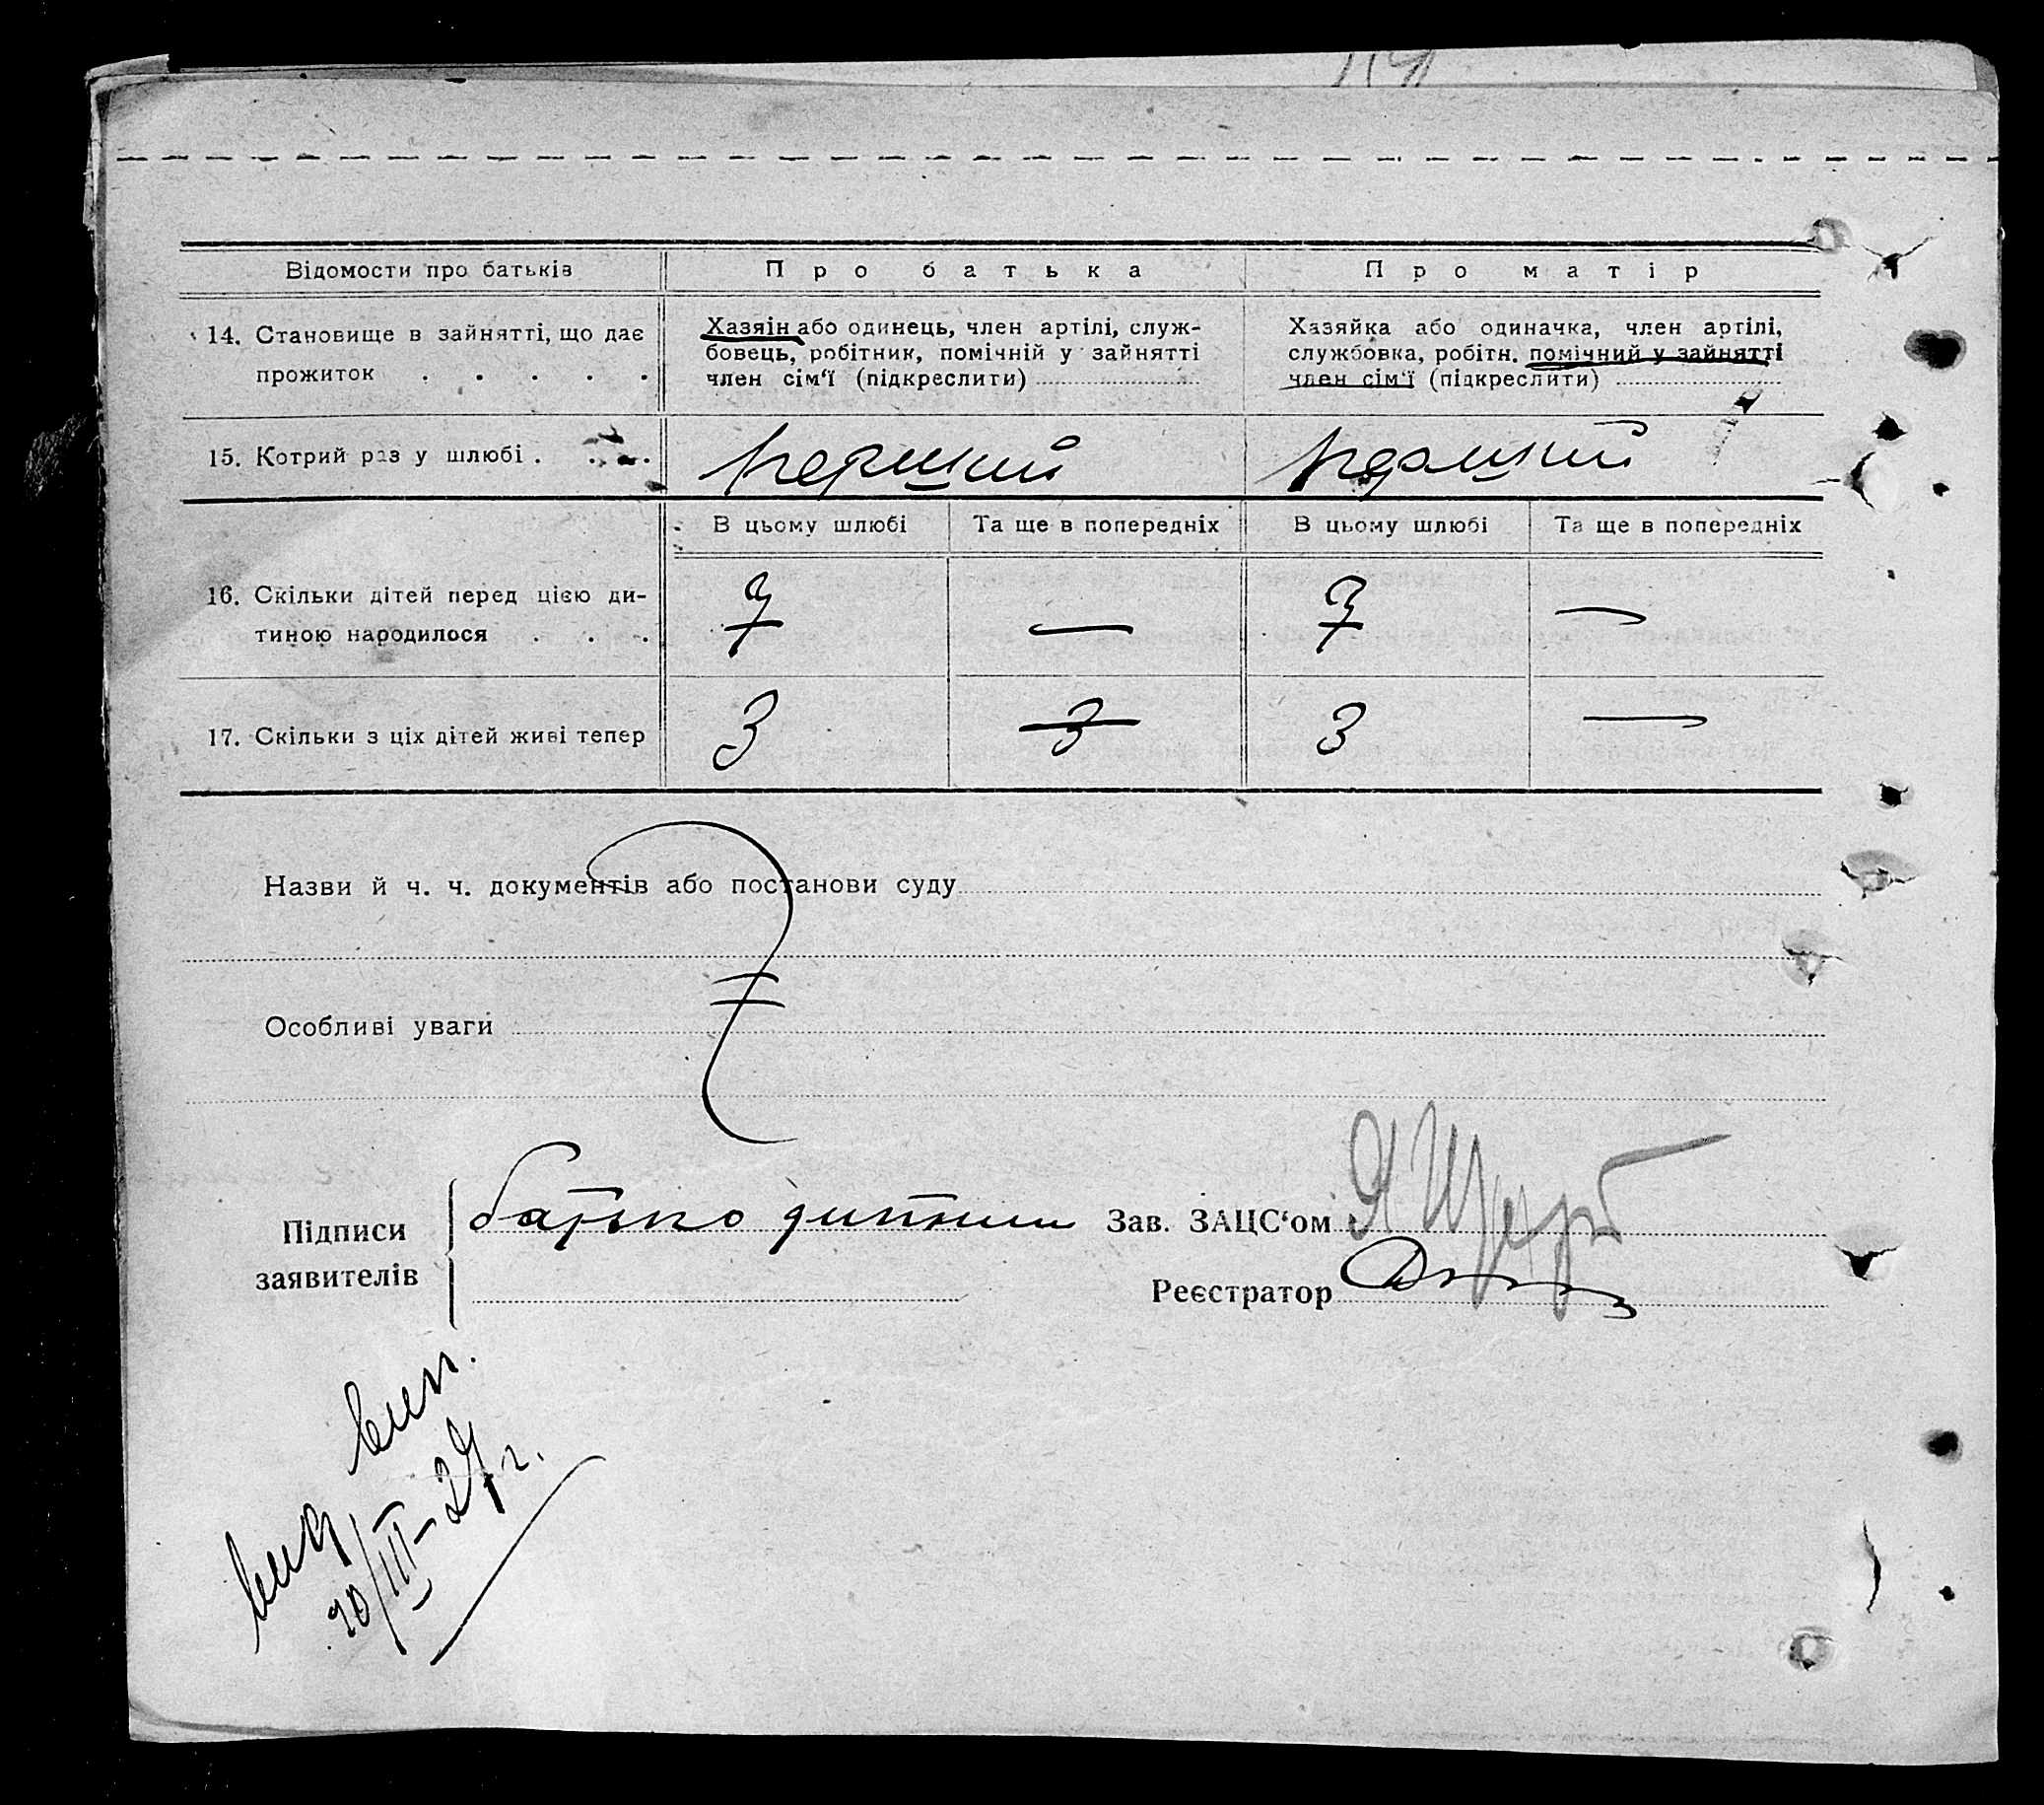 Відомости про батьків
Про батька
Про матір
14. Становище в зайнятті, що дає
прожиток . . . . .
Хазяін або одинець, член артілі, служ-
бовець, робітник, помічній у зайнятті
член сім'ї (підкреслити)
Хазяйка або одиначка, член артілі,
службовка, робітн. помічний у зайнятті
член сім'ї (підкреслити)
15. Котрий раз у шлюбі .
перший
перший
В цьому шлюбі
Та ще в попередніх
В цьому шлюбі
Та ще в попередніх
16. Скільки дітей перед цією ди-
тиною народилося . . .
7
—
7
—
17. Скільки з ціх дітей живі тепер
3
3
3
—
Назви й ч. ч. документів або постанови суду
Особливі уваги
Підписи
заявителів
батько дитини
Зав. ЗАЦС'ом
Реєстратор
вид вип.
20/III-29 г.